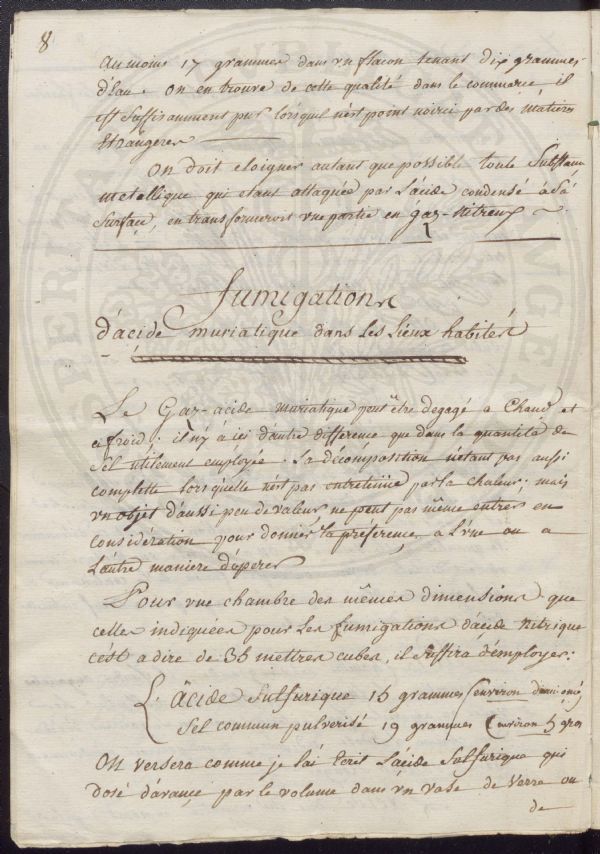 8
au moins 17 grammes dans vn flacon tenant dix grammes
d'Eau. on en trouve de cette qualité dans le commerce il
est suffisamment pur lorsqu'il n'est point noirci par des matieres
Etrangeres
On doit eloigner autant que possible toute substance
metallique qui etant attaquée par l'acide condensé à sa
surface, en transformeroit vne partie en gaz-nitreux
fumigations
d'acide muriatique dans les lieux habités
Le Gaz-acide muriatique peut être degagé a Chaud et
a froid; il n'y à ici d'autre difference que dans la quantité de
sel utilement employée. La décomposition n'etant pas aussi
complette lors qu'elle n'est pas entretenüe par la chaleur; mais
vn objet d'aussi peu de valeur ne peut pas même entrer en
considération pour donner la préférence a L'vne ou a
L'autre maniere d'operer
Pour vne chambre des mêmes dimensions que
celles indiquées pour les fumigations d'acide Nitrique
c'est a dire de 35 mettres cubes, il suffira d'employer:
L'âcide sulfurique 15 grammes (environ demi once
Sel commun pulverisé 19 grammes (environ 5 gros
On versera comme je l'ai Ecrit L'acide sulfurique qui
dosé d'avance par le volume dans vn vase de Verre ou
de